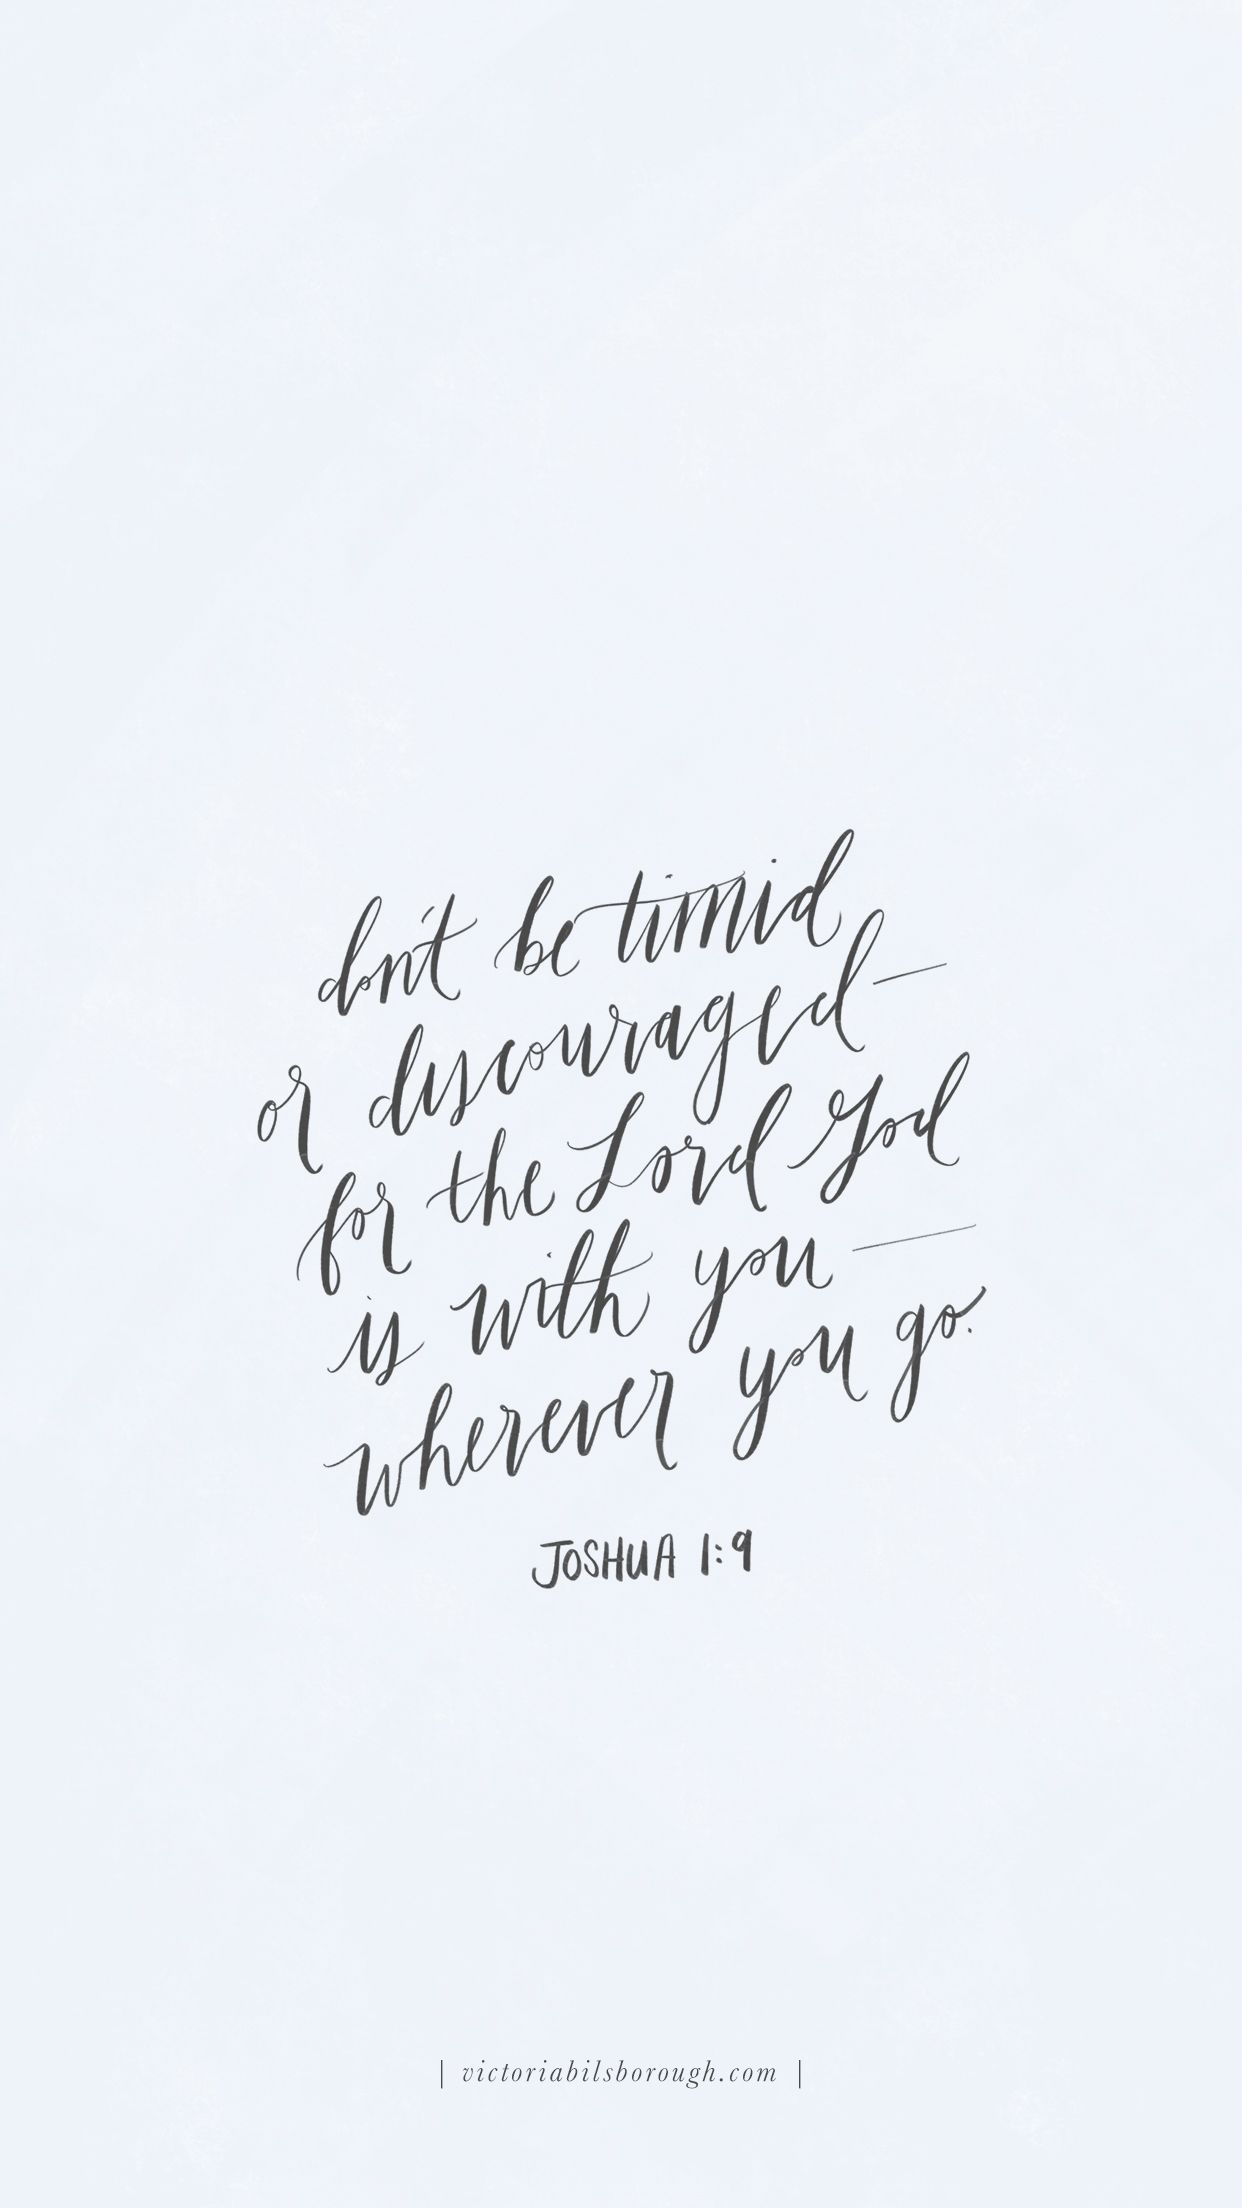 don't be timid
or discouraged—
for the Lord God
is with you—
wherever you go.
JOSHUA 1:9
| victoriabilsborough.com |